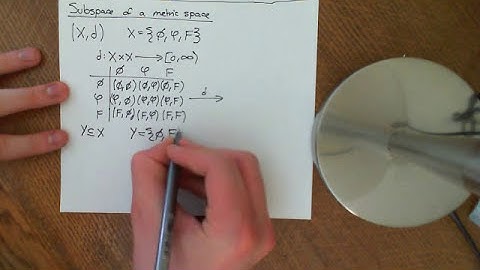 Subspace of a metric space
(X, d) X = {φ, φ, F}
d: X×X → [0, ∞)
φ φ F
φ (φ, φ) (φ, φ) (φ, F)
φ (φ, φ) (φ, φ) (φ, F) d →
F (F, φ) (F, φ) (F, F)
Y ⊆ X Y = {φ, F